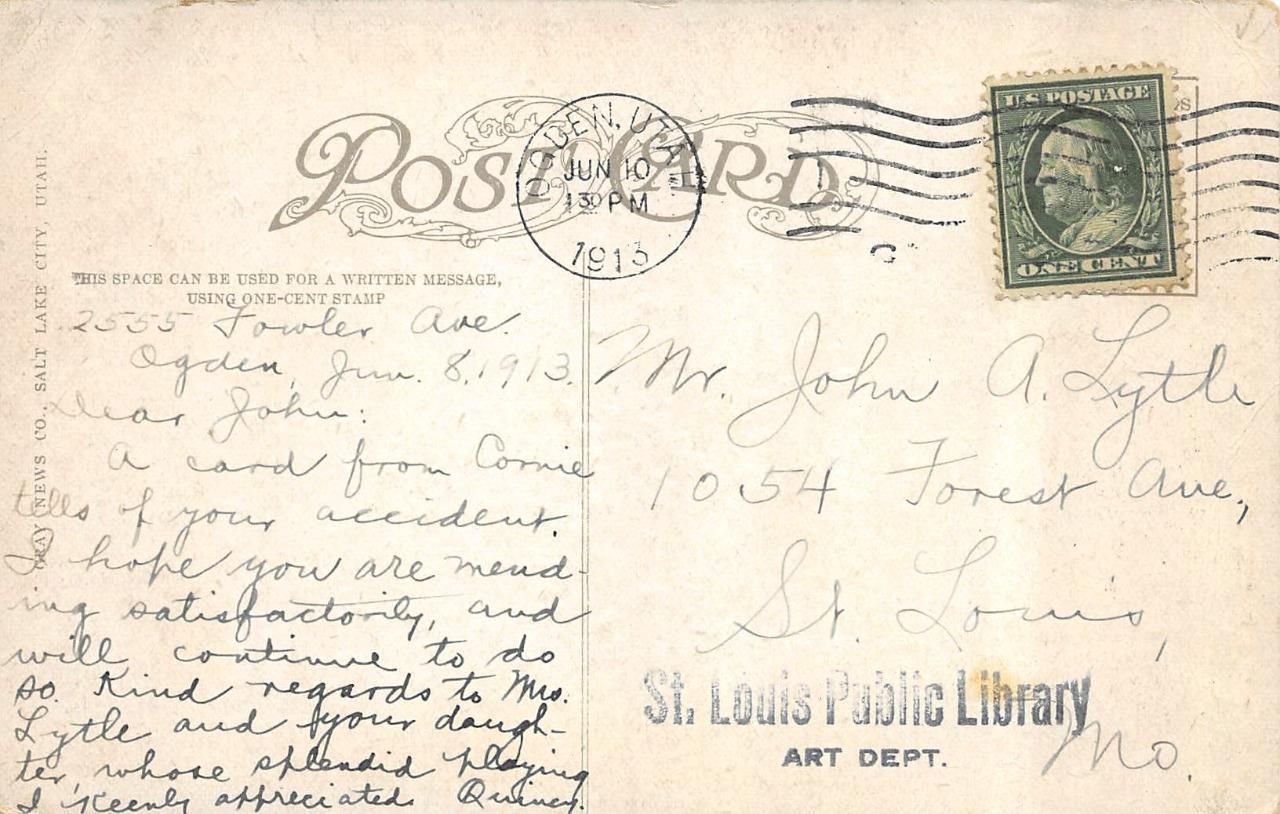 POST CARD
OGDEN, UTAH
JUN 10
130 PM
1913
U.S. POSTAGE
ONE CENT
GRAY NEWS CO., SALT LAKE CITY, UTAH.
THIS SPACE CAN BE USED FOR A WRITTEN MESSAGE,
USING ONE-CENT STAMP
2555 Fowler Ave.
Ogden, Jun. 8, 1913.
Dear John:
A card from Cornie
tells of your accident.
I hope you are mend-
ing satisfactorily, and
will continue to do
so. Kind regards to Mrs.
Lytle and your daugh-
ter, whose splendid playing
I keenly appreciated. Quincy.
Mr. John A. Lytle
1054 Forest Ave.,
St. Louis,
Mo.
St. Louis Public Library
ART DEPT.